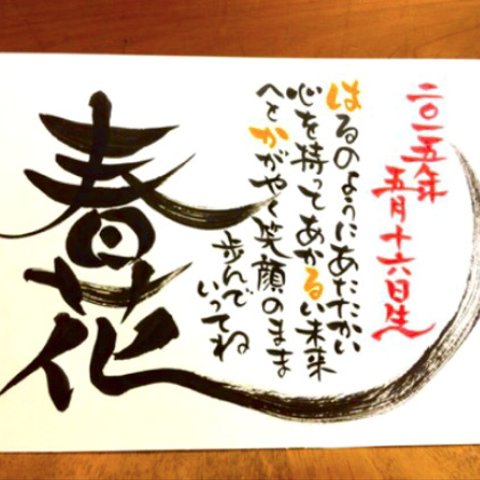 二〇一五年
五月十六日生
はるのようにあたたかい
心を持ってあかるい未来
へとかがやく笑顔のまま
歩んで
いってね
春花